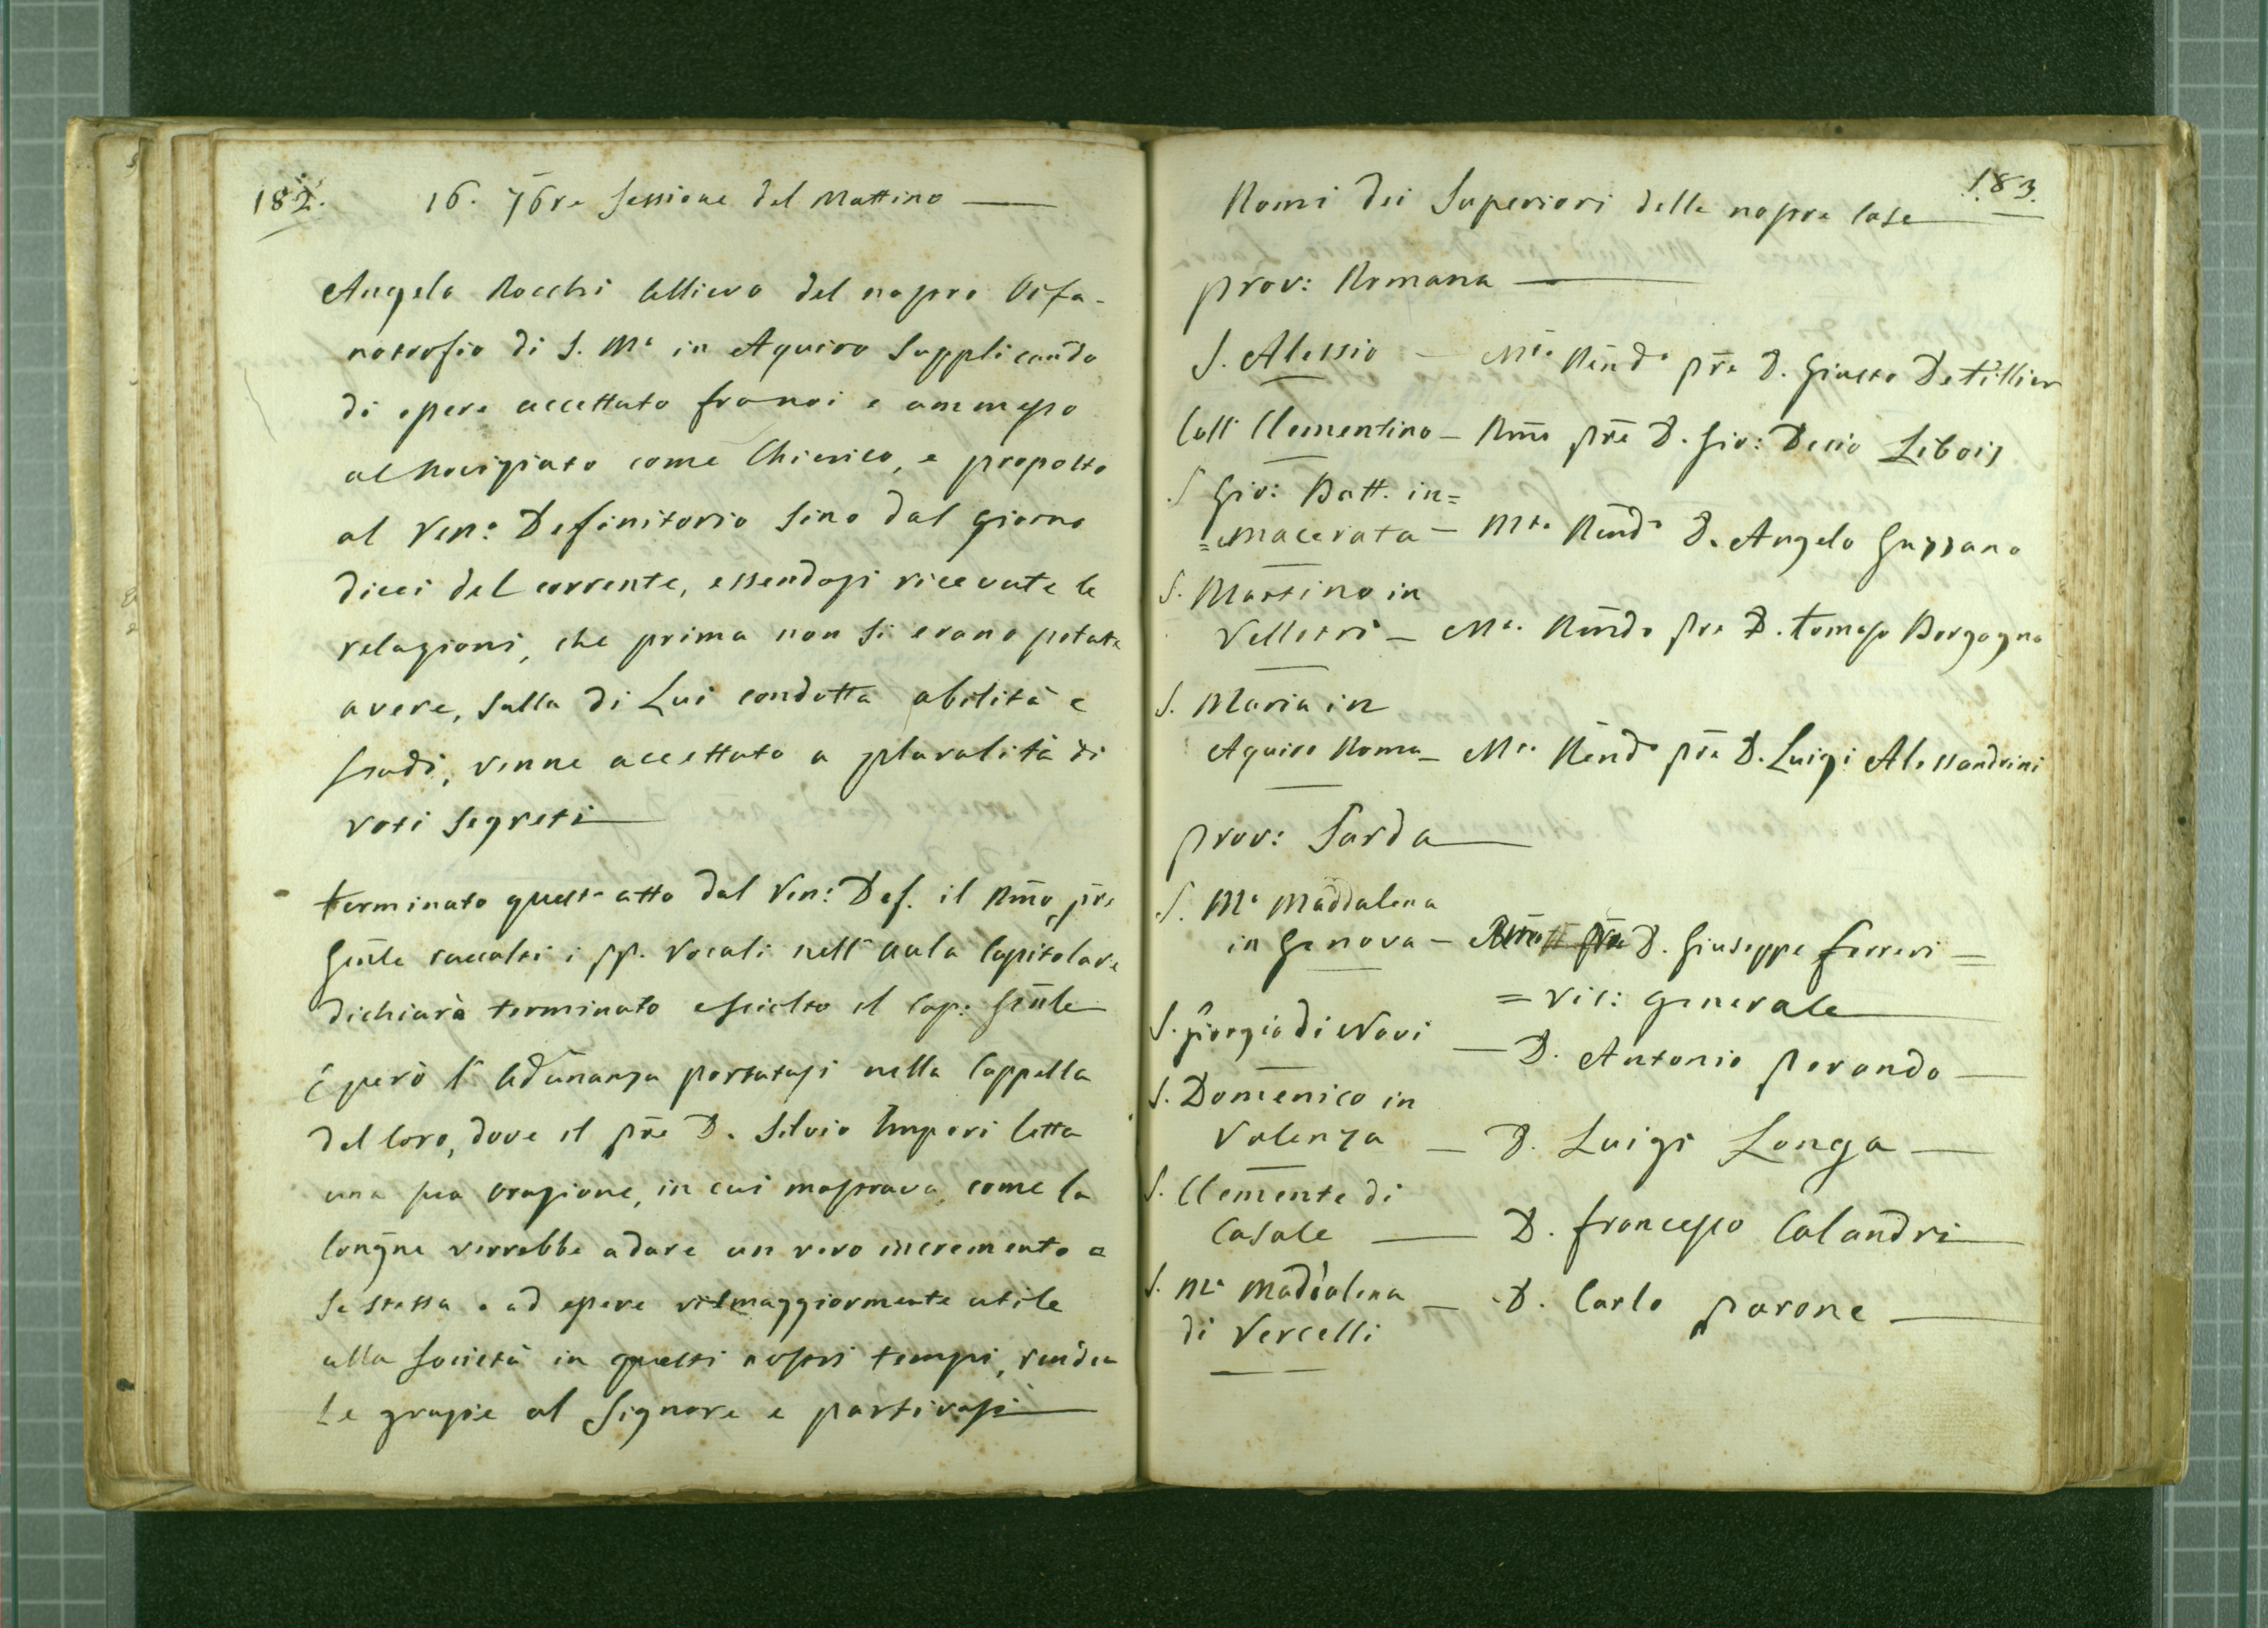 182.
16. 7bre Sessione del Mattino
Angelo Rocchi Allievo del nostro Orfa-
notrofio di S. Mᵃ in Aquiro Supplicando
di essere accettato fra noi e ammesso
al Noviziato come Chierico, e proposto
al Ven: Definitorio sino dal giorno
dieci del corrente, essendosi ricevute le
relazioni, che prima non si erano potute
avere, sulla di Lui condotta abilità e
studi, venne accettato a pluralità di
voti segreti
Terminato questo atto dal Ven: Def. il Rm̃o pr̃e
Gen̄le raccolti i pp. Vocali nell'Aula Capitolare
dichiarò terminato e sciolto il Cap: Gen̄le
E però l'Adunanza portatasi nella Cappella
del Coro, dove il pr̃e D. Silvio Imperi letta
una sua orazione, in cui mostrava come la
Congñe verrebbe a dare un vero incremento a
se stessa e ad essere vie maggiormente utile
alla Società in questi nostri tempi, rendea
le grazie al Signore e partivasi
183.
Nomi dei Superiori delle nostre Case
prov: Romana
S. Alessio — Mᵗᵒ Rend̃ᵒ pr̃e D. Giusto De Tillier
Coll Clementino — Rm̃o pr̃e D. Gio: Decio Libois
S Gio: Batt. in=
=Macerata — Mᵗᵒ Rend̃ᵒ D. Angelo Guzzano
S. Martino in
Velletri — Mᵒ. Rend̃o pre D. Tomaso Borgogno
S. Maria in
Aquiro Roma — Mᵗᵒ. Rend̃ᵒ pr̃e D. Luigi Alessandrini
prov: Sarda
S. Mᵃ Maddalena
in Genova — D. Giuseppe Ferreri =
= Vic: Generale
S. Giorgio di Novi
— D. Antonio Porando —
S. Domenico in
Valenza — D. Luigi Longa —
S. Clemente di
Casale — D. Francesco Calandri
S. Mᵃ Maddalena — D. Carlo Parone —
di Vercelli